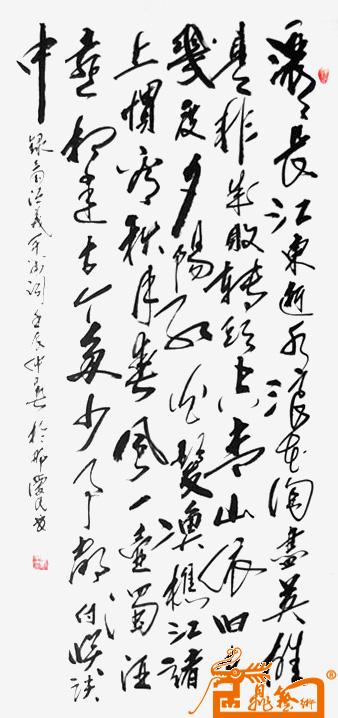 滚滚長江東逝水浪花淘盡英雄
是非成敗轉頭空青山依旧在
幾度夕陽紅白髮漁樵江渚
上慣看秋月春風一壶濁酒
喜相逢古今多少事都付笑談
中
壬辰仲夏於